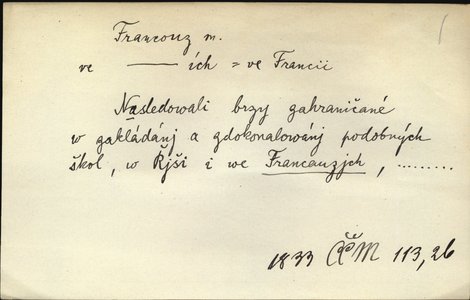 Francouz m.
ve ——— ích = ve Francii
Následowali brzy zahraničané
w zakládánj a zdokonalowánj podobných
škol, w Řjši i we Francauzjch, .........
1833 ČČM 113,26